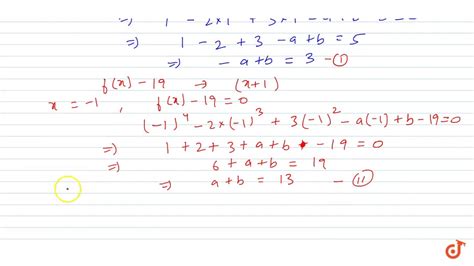 ⇒ 1 - 2 + 3 - a + b = 5
⇒ - a + b = 3 - ①
f(x) - 19 → (x+1)
x = -1 , f(x) - 19 = 0
(-1)⁴ - 2×(-1)³ + 3(-1)² - a(-1) + b - 19 = 0
⇒ 1 + 2 + 3 + a + b - 19 = 0
⇒ 6 + a + b = 19
⇒ a + b = 13 - ⑪